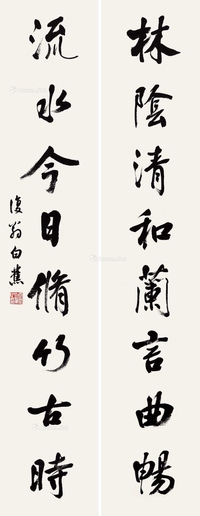 林陰清和蘭言曲暢
流水今日脩竹古時
復翁白蕉